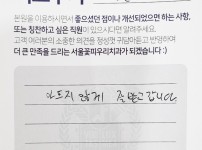 본원을 이용하시면서 좋으셨던 점이나 개선되었으면 하는 사항,
또는 칭찬하고 싶은 직원이 있으시다면 알려주세요.
고객 여러분의 소중한 의견을 정성껏 귀담아듣고 반영하여
더 큰 만족을 드리는 서울꽃피우리치과가 되겠습니다 :)
아프지 않게 잘 받고 갑니다.